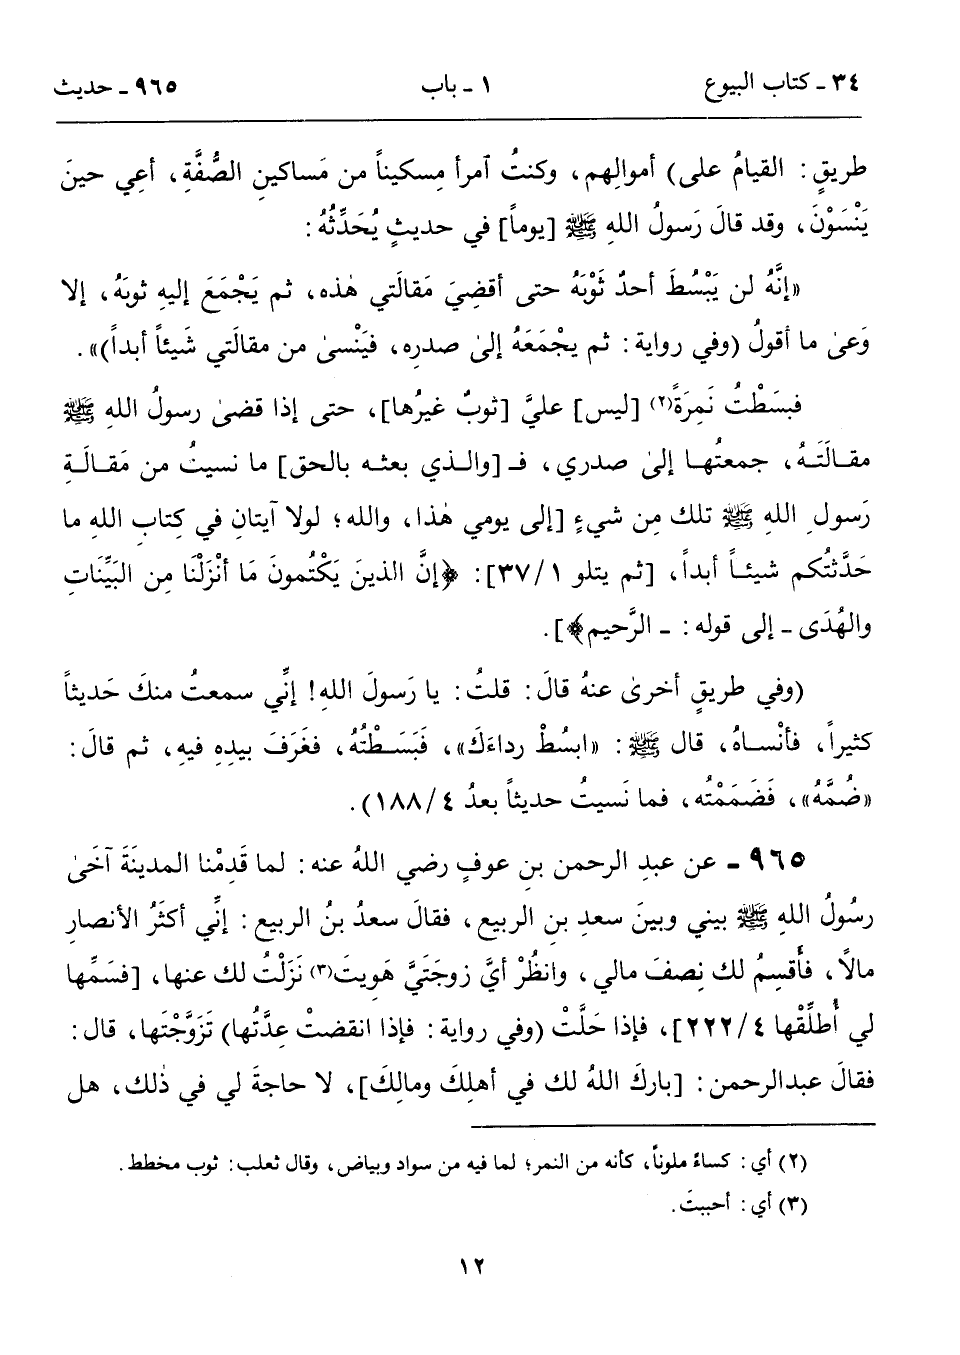 ٣٤ ـ كتاب البيوع ١ ـ باب ٩٦٥ ـ حديث
طريقٍ: القيامُ على) أموالِهم، وكنتُ آمرأ مِسكيناً من مَساكينِ الصُّفَّةِ، أعِي حينَ
يَنْسَوْنَ، وقد قالَ رَسولُ اللهِ ﷺ [يوماً] في حديثٍ يُحَدِّثُهُ:
«إنَّهُ لن يَبْسُطَ أحدٌ ثَوْبَهُ حتى أقضِيَ مَقالَتي هٰذه، ثم يَجْمَعَ إليهِ ثوبَهُ، إلا
وَعىٰ ما أقولُ (وفي رواية: ثم يجْمَعَهُ إلىٰ صدرِه، فيَنْسىٰ من مقالَتي شَيئاً أبداً)».
فبسَطْتُ نَمِرَةً(٢) [ليس] عليَّ [ثوبٌ غيرُها]، حتى إذا قضىٰ رسولُ اللهِ ﷺ
مقـالَتَـهُ، جمعتُهـا إلىٰ صدري، فـ [والـذي بعثـه بالحق] ما نسيتُ من مَقـالَـةِ
رَسولِ اللهِ ﷺ تلك مِن شيءٍ [إلى يومي هٰذا، والله؛ لولا آيتانِ في كِتابِ اللهِ ما
حَدَّثتُكم شيئـاً أبداً، [ثم يتلو ١/ ٣٧]: ﴿إنَّ الذينَ يَكْتُمونَ مَا أنْزَلْنَا مِن البَيِّنَاتِ
والهُدَى ـ إلى قوله: ـ الرَّحيم﴾].
(وفي طريقٍ أخرىٰ عنهُ قالَ: قلتُ: يا رَسولَ اللهِ! إنِّي سمعتُ منكَ حَديثاً
كثيراً، فأنْسـاهُ، قال ﷺ: «ابسُطْ رداءَكَ»، فَبَسَـطْتُهُ، فغَرَفَ بيدِهِ فيهِ، ثم قالَ:
«ضُمَّهُ»، فَضَمَمْتُه، فما نَسيتُ حديثاً بعدُ ٤/ ١٨٨).
٩٦٥ ـ عن عبدِ الرحمن بنِ عوفٍ رضي اللهُ عنه: لما قَدِمْنا المدينَةَ آخَىٰ
رسُولُ اللهِ ﷺ بيني وبينَ سعدِ بنِ الربيع، فقالَ سعدُ بنُ الربيع: إنِّي أكثَرُ الأنصارِ
مالًا، فأَقسِمُ لك نِصفَ مالي، وانظُرْ أيَّ زوجَتَيَّ هَويتَ(٣) نَزَلْتُ لك عنها، [فسَمِّها
لي أُطلِّقْها ٤/ ٢٢٢]، فإذا حَلَّتْ (وفي رواية: فإذا انقضتْ عِدَّتُها) تَزَوَّجْتَها، قال:
فقالَ عبدالرحمن: [باركَ اللهُ لك في أهلِكَ ومالِكَ]، لا حاجةَ لي في ذٰلك، هل
(٢) أي: كساءً ملوناً، كأنه من النمر؛ لما فيه من سواد وبياض، وقال ثعلب: ثوب مخطط.
(٣) أي: أحببتَ.
١٢